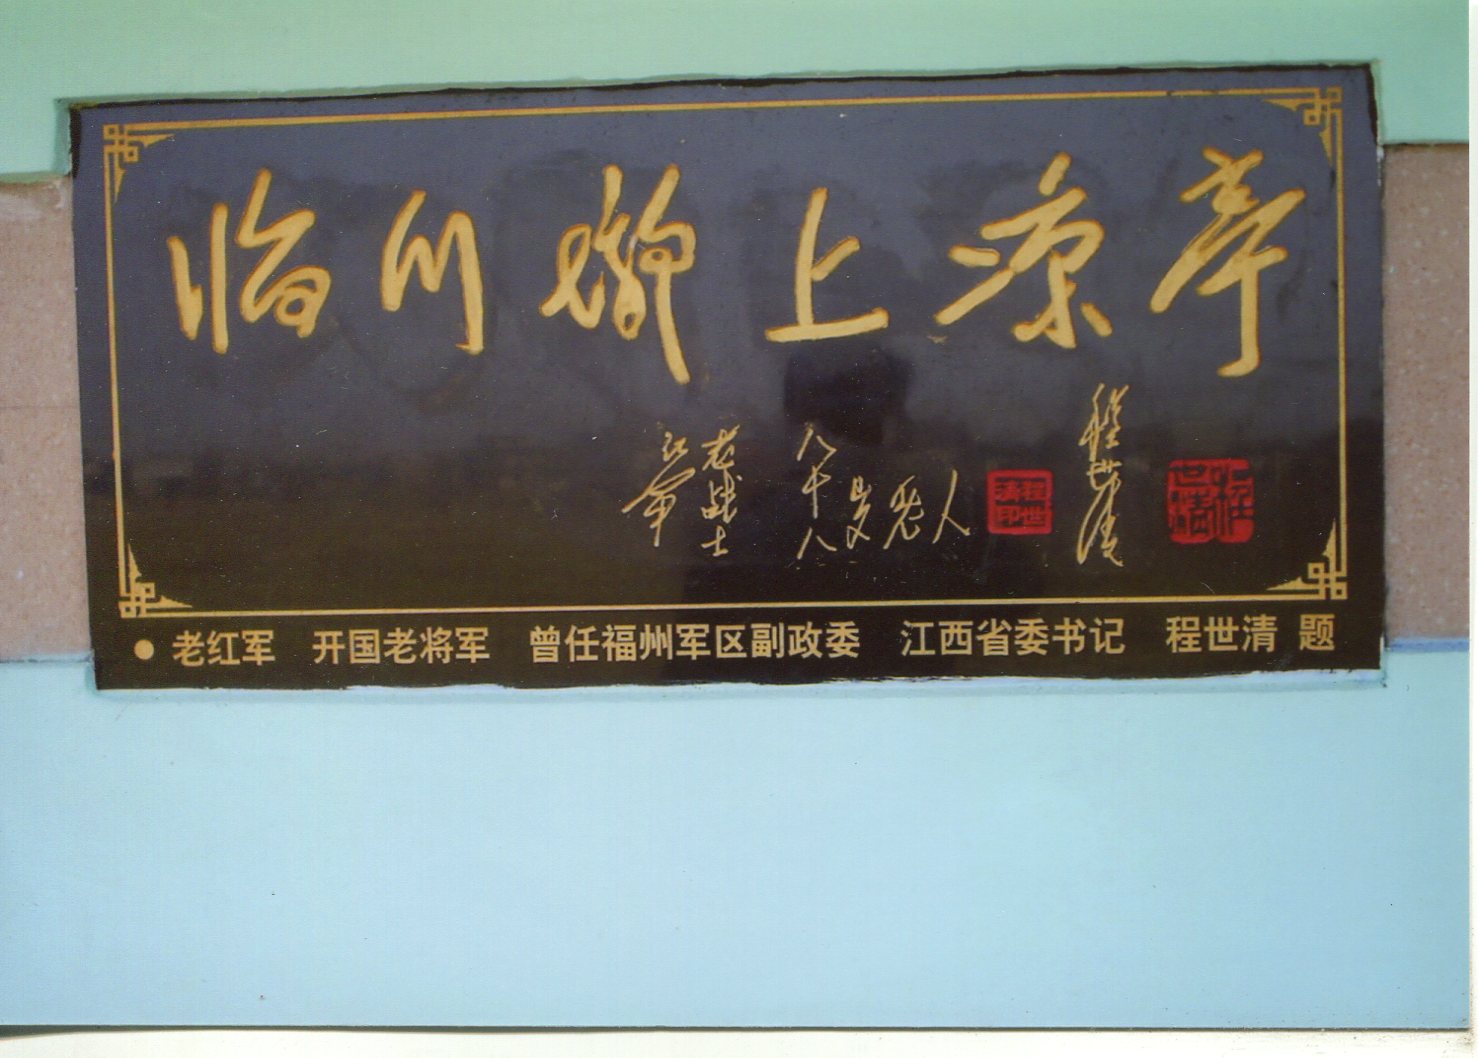 临川 上凉亭
红军老战士 八十八岁老人 程世清
程世清印
程世清
●老红军 开国老将军 曾任福州军区副政委 江西省委书记 程世清 题